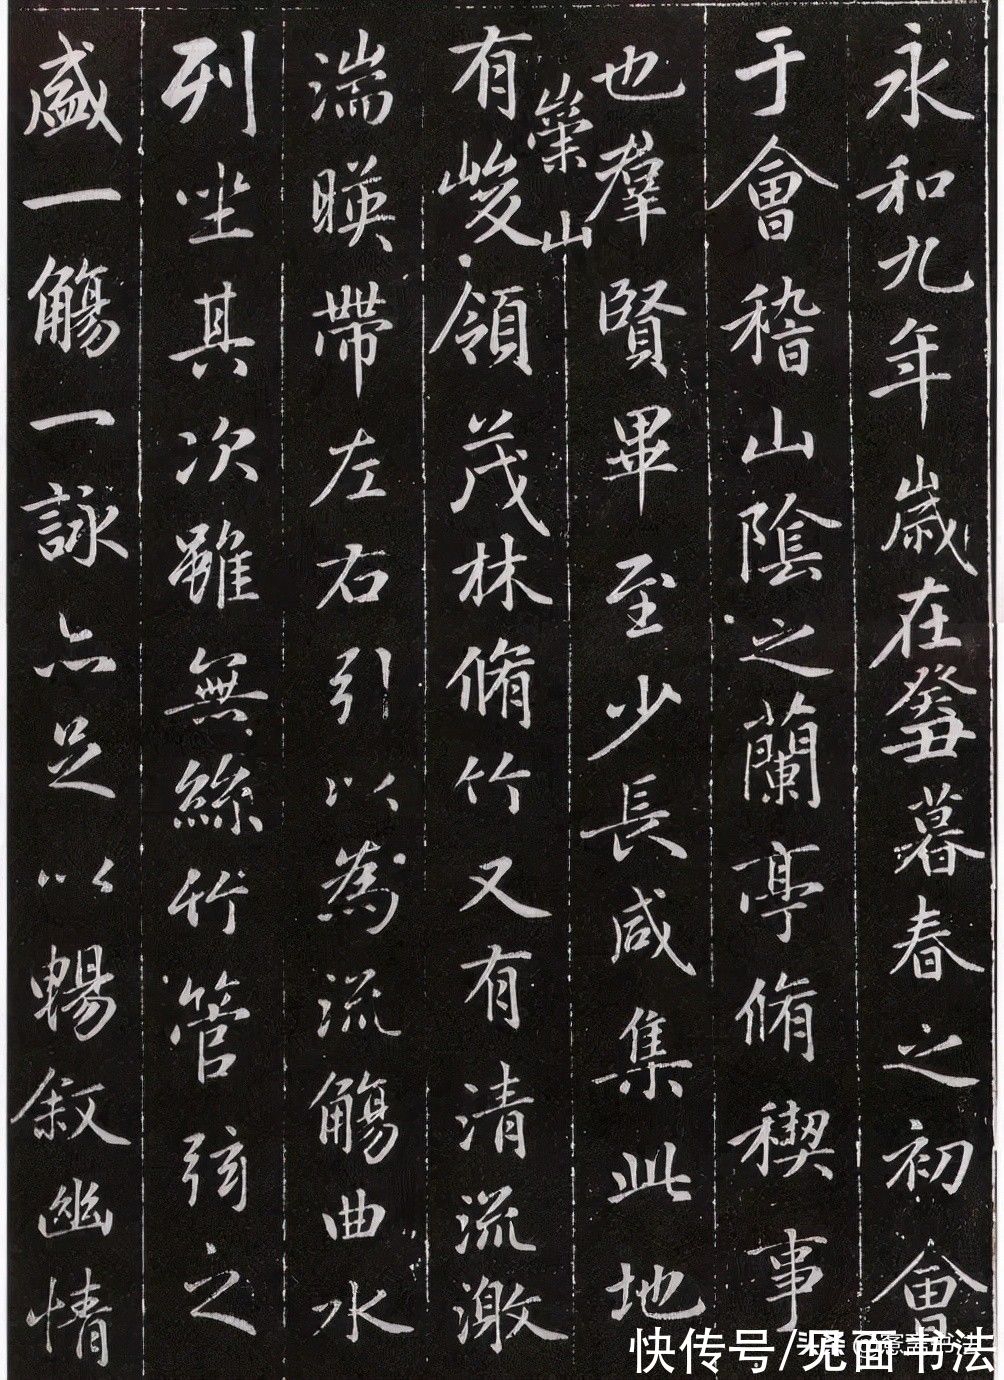 永和九年歲在癸丑暮春之初會
于會稽山陰之蘭亭脩稧事
也羣賢畢至少長咸集此地
有崇山峻領茂林脩竹又有清流激
湍暎帶左右引以為流觴曲水
列坐其次雖無絲竹管弦之
盛一觴一詠亦足以暢敘幽情
快传号/见面书法